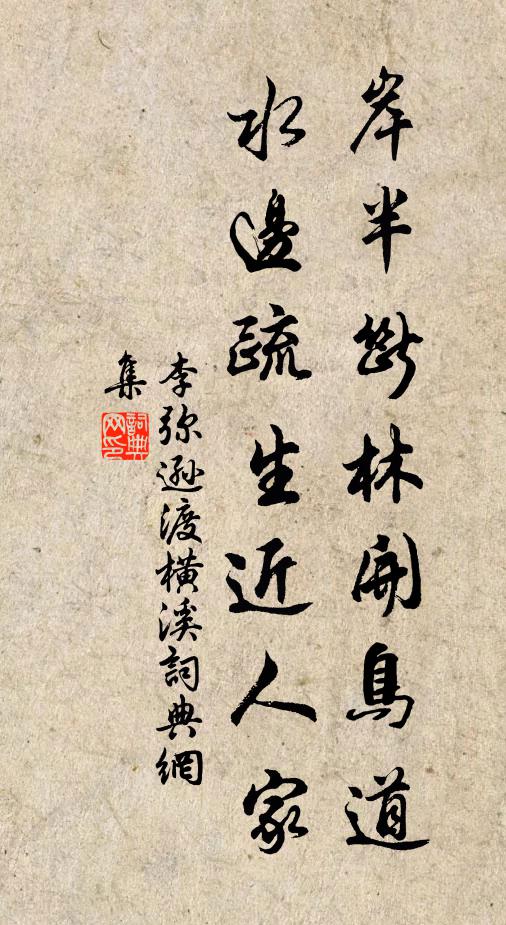 岸半斷林開鳥道
水邊疏生近人家
李弥遜渡橫溪詞典網
集
詞典
网印